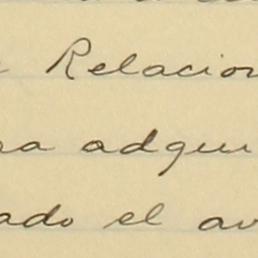 Relacion
ra adqui
ado el av